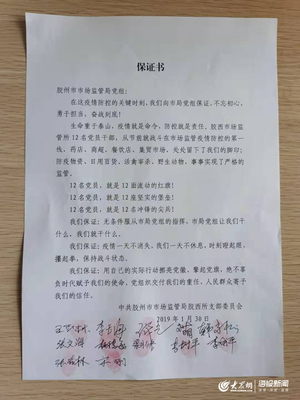 保证书
胶州市市场监管局党组:
在这疫情防控的关键时刻,我们向市局党组保证,不忘初心,
勇于担当,奋战到底!
生命重于泰山,疫情就是命令,防控就是责任。胶西市场监
管所12名党员干部,从节前就战斗在疫情防控的第一
线,药店、商超、餐饮店、集贸市场,处处留下了我们的脚印;
防疫物资、日用百货、活禽宰杀、野生动物,事事实现了严格的
监管。
12名党员,就是12面流动的红旗!
12名党员,就是12座坚实的堡垒!
12名党员,就是12名冲锋的尖兵!
我们保证:无条件服从市局党组的指挥,市局党组让我们干
什么,我们就干什么。
我们保证:疫情一天不消失,我们一天不休息,时刻瞪起眼,
攥起拳,保持战斗状态。
我们保证:用自己的实际行动擦亮党徽,擎起党旗,绝不辜
负时代赋予我们的使命,党组织交付我们的重任,人民群众寄予
我们的信任。
中共胶州市市场监管局胶西所支部委员会
2019年1月30日
大众网·海报新闻